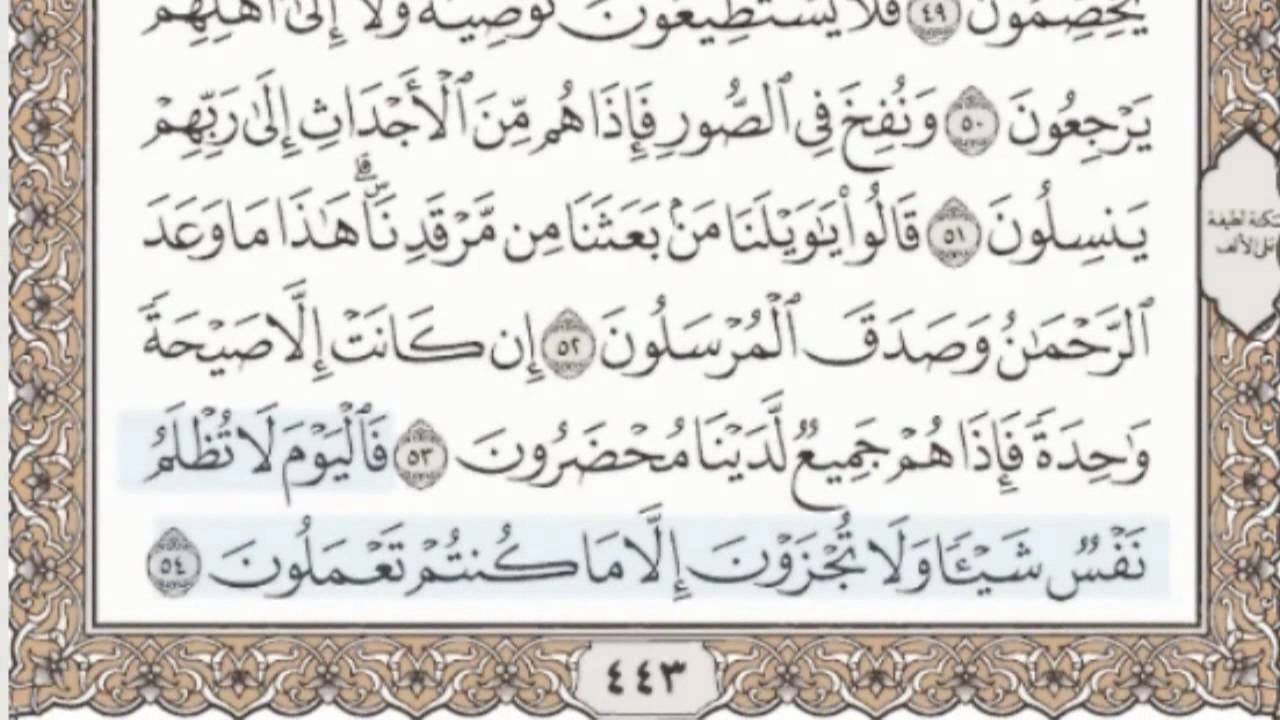 يَخِصِّمُونَ ٤٩ فَلَا يَسْتَطِيعُونَ تَوْصِيَةً وَلَآ إِلَىٰٓ أَهْلِهِمْ
يَرْجِعُونَ ٥٠ وَنُفِخَ فِي ٱلصُّورِ فَإِذَا هُم مِّنَ ٱلْأَجْدَاثِ إِلَىٰ رَبِّهِمْ
يَنسِلُونَ ٥١ قَالُوا۟ يَٰوَيْلَنَا مَنۢ بَعَثَنَا مِن مَّرْقَدِنَا ۜ ۗ هَٰذَا مَا وَعَدَ
ٱلرَّحْمَٰنُ وَصَدَقَ ٱلْمُرْسَلُونَ ٥٢ إِن كَانَتْ إِلَّا صَيْحَةً
وَٰحِدَةً فَإِذَا هُمْ جَمِيعٌ لَّدَيْنَا مُحْضَرُونَ ٥٣ فَٱلْيَوْمَ لَا تُظْلَمُ
نَفْسٌ شَيْـًٔا وَلَا تُجْزَوْنَ إِلَّا مَا كُنتُمْ تَعْمَلُونَ ٥٤
٤٤٣
لطيفة
الألف